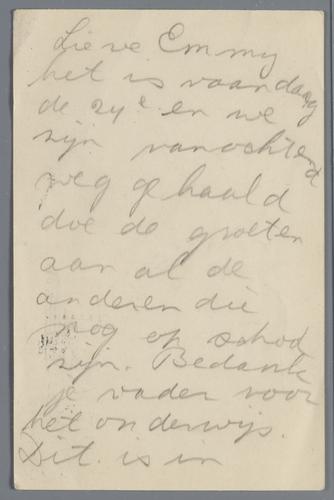 Lieve Emmy
het is vaandaag
de 24e en we
zijn vanochtend
weg gehaald
doe de groeten
aan al de
anderen die
nog op school
zijn. Bedank
je vader voor
het onderwijs.
Dit is in